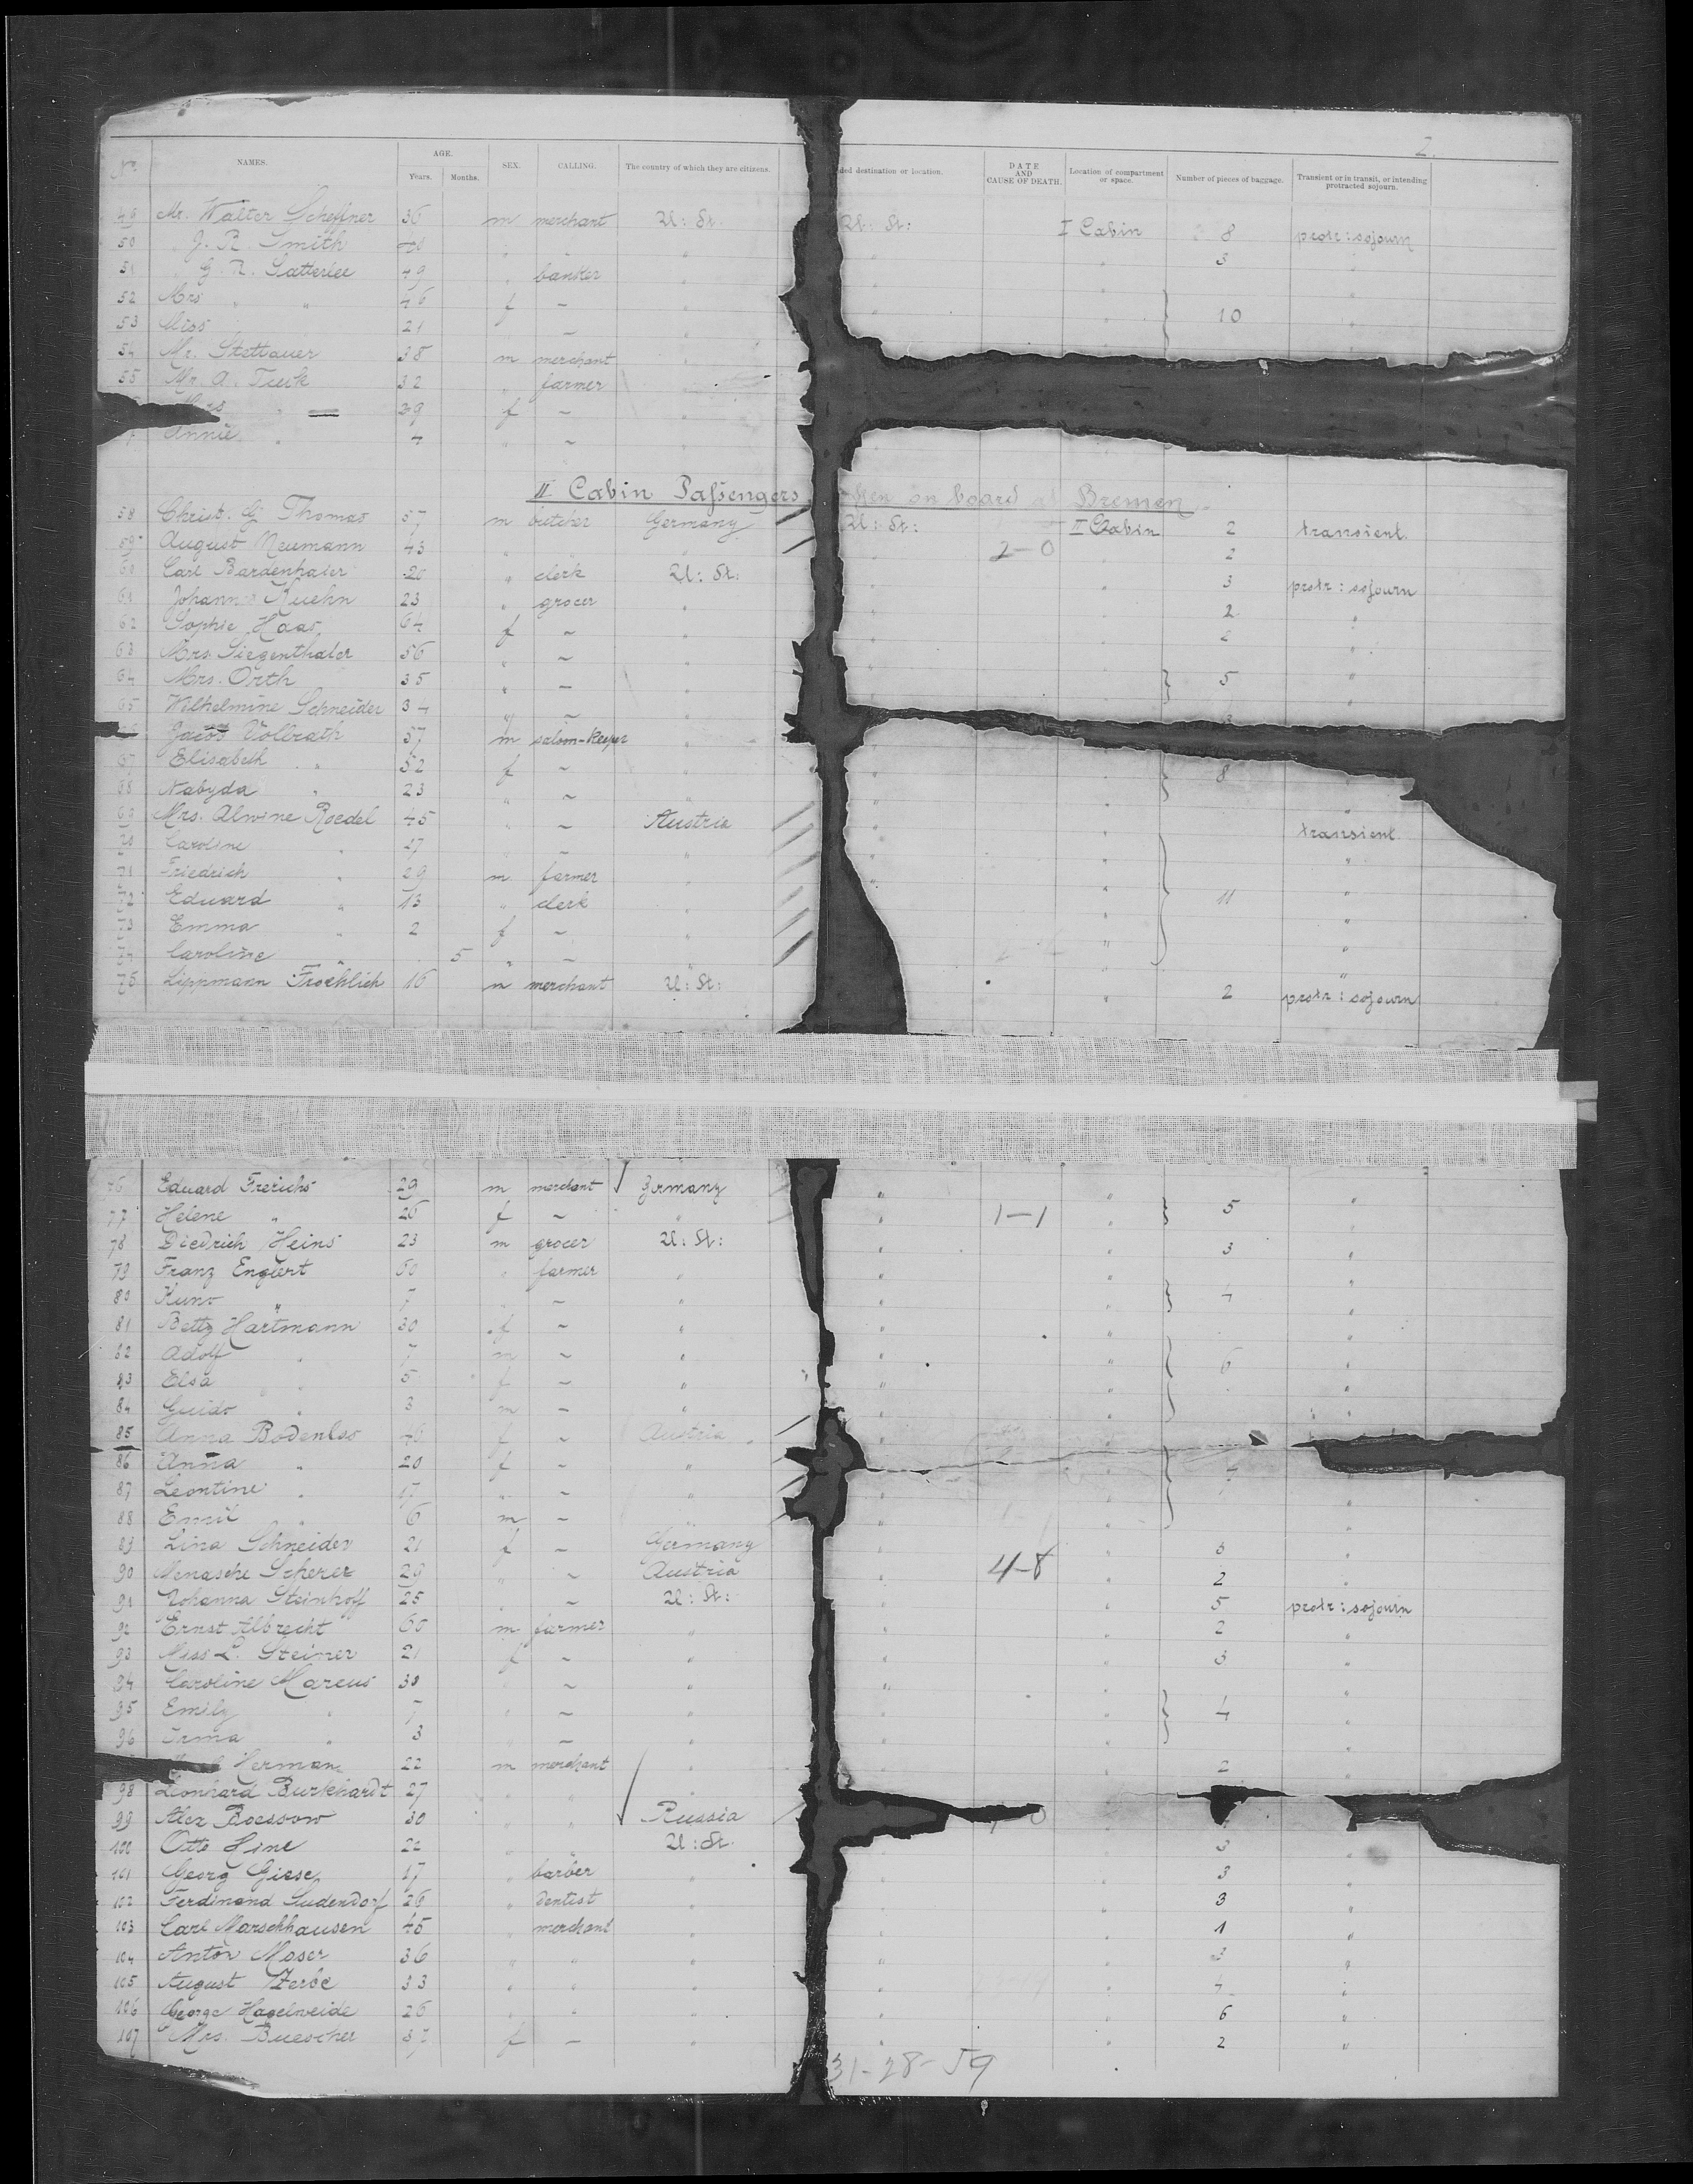 2.
No. NAMES. AGE. Years. Months. SEX. CALLING. The country of which they are citizens. ded destination or location. DATE AND CAUSE OF DEATH. Location of compartment or space. Number of pieces of baggage. Transient or in transit, or intending protracted sojourn.
49 Mr. Walter Scheffner 36 m merchant U: St. U: St: I Cabin 8 protr: sojourn
50 " J. R. Smith 40 " " " " " 3 "
51 " G. R. Satterlee 49 " banker " " " "
52 Mrs " " 46 f ~ " " " } 10 "
53 Miss 21 ~ " " "
54 Mr. Stettauer 38 m merchant "
55 Mr. A. Teerk 32 " farmer "
Mrs " 29 f ~ "
7 Annie " 4 " ~ "
II Cabin Passengers, ken on board at Bremen
58 Christ. G. Thomas 57 m butcher Germany U: St: II Cabin 2 transient.
59 August Neumann 43 " " " " 2-0 " 2 "
60 Carl Bardenhaier 20 " clerk U: St: " " 3 protr: sojourn
61 Johann Kuehn 23 " grocer " " " 2 "
62 Sophie Haas 64 f ~ " " " 2 "
63 Mrs. Siegenthaler 56 " ~ " " " } 5 "
64 Mrs. Orth 35 " ~ " " " "
65 Wilhelmine Schneider 34 " ~ " 3
Jacob Vollrath 57 m saloon-keeper "
67 Elisabeth " 52 f ~ " " " } 8
68 Nabyda " 23 " ~ " " " "
69 Mrs. Alwine Roedel 45 " ~ Austria " " transient.
70 Caroline " 27 " ~ " " " } "
71 Friedrich " 29 m farmer " " " "
72 Eduard " 13 " clerk " " 11 "
73 Emma " 2 f ~ " " "
74 Caroline " 5 " ~ " " "
75 Lippmann Froehlich 16 m merchant U: St: " 2 protr: sojourn
76 Eduard Frerichs 29 m merchant Germany " " } 5 "
77 Helene " 26 f ~ " " 1-1 " "
78 Diedrich Heins 23 m grocer U: St: " " 3 "
79 Franz Englert 50 " farmer " " " } 4 "
80 Kuno " 7 " ~ " " " "
81 Betty Hartmann 30 f ~ " " " "
82 Adolf " 7 m ~ " " " } 6 "
83 Elsa " 5 f ~ " " " "
84 Guido " 3 m ~ " " " "
85 Anna Bodenlos 46 f ~ Austria " "
86 Anna " 20 f ~ " " " } 7 "
87 Leontine " 17 " ~ " " " "
88 Emil " 6 m ~ " " " "
89 Lina Schneider 21 f ~ Germany " " 3 "
90 Menasche Scherer 29 " ~ Austria " 4-8 " 2 "
91 Johanna Steinhoff 25 " ~ U: St: " " 5 protr: sojourn
92 Ernst Albrecht 65 m farmer " " " 2 "
93 Miss L. Steiner 21 f ~ " " " 3 "
94 Caroline Marcus 30 " ~ " " " "
95 Emily " 7 " ~ " " " } 4 "
96 Irma " 3 " ~ " "
Herman 22 m merchant " 2
98 Leonhard Burkhardt 27 " " "
99 Alex Boessow 30 " " Russia
100 Otto Hine 22 " " U: St. " 3
101 Georg Giese 17 " barber " " " 3 "
102 Ferdinand Ludendorf 26 " dentist " " " 3 "
103 Carl Marschhausen 45 " merchant " " " 1 "
104 Anton Moser 36 " " " " " 3 "
105 August Zerbe 33 " " " " " 4 "
106 George Hagelweide 26 " " " " " 6 "
107 Mrs. Buescher 37 f ~ " " " 2 "
31-28-59